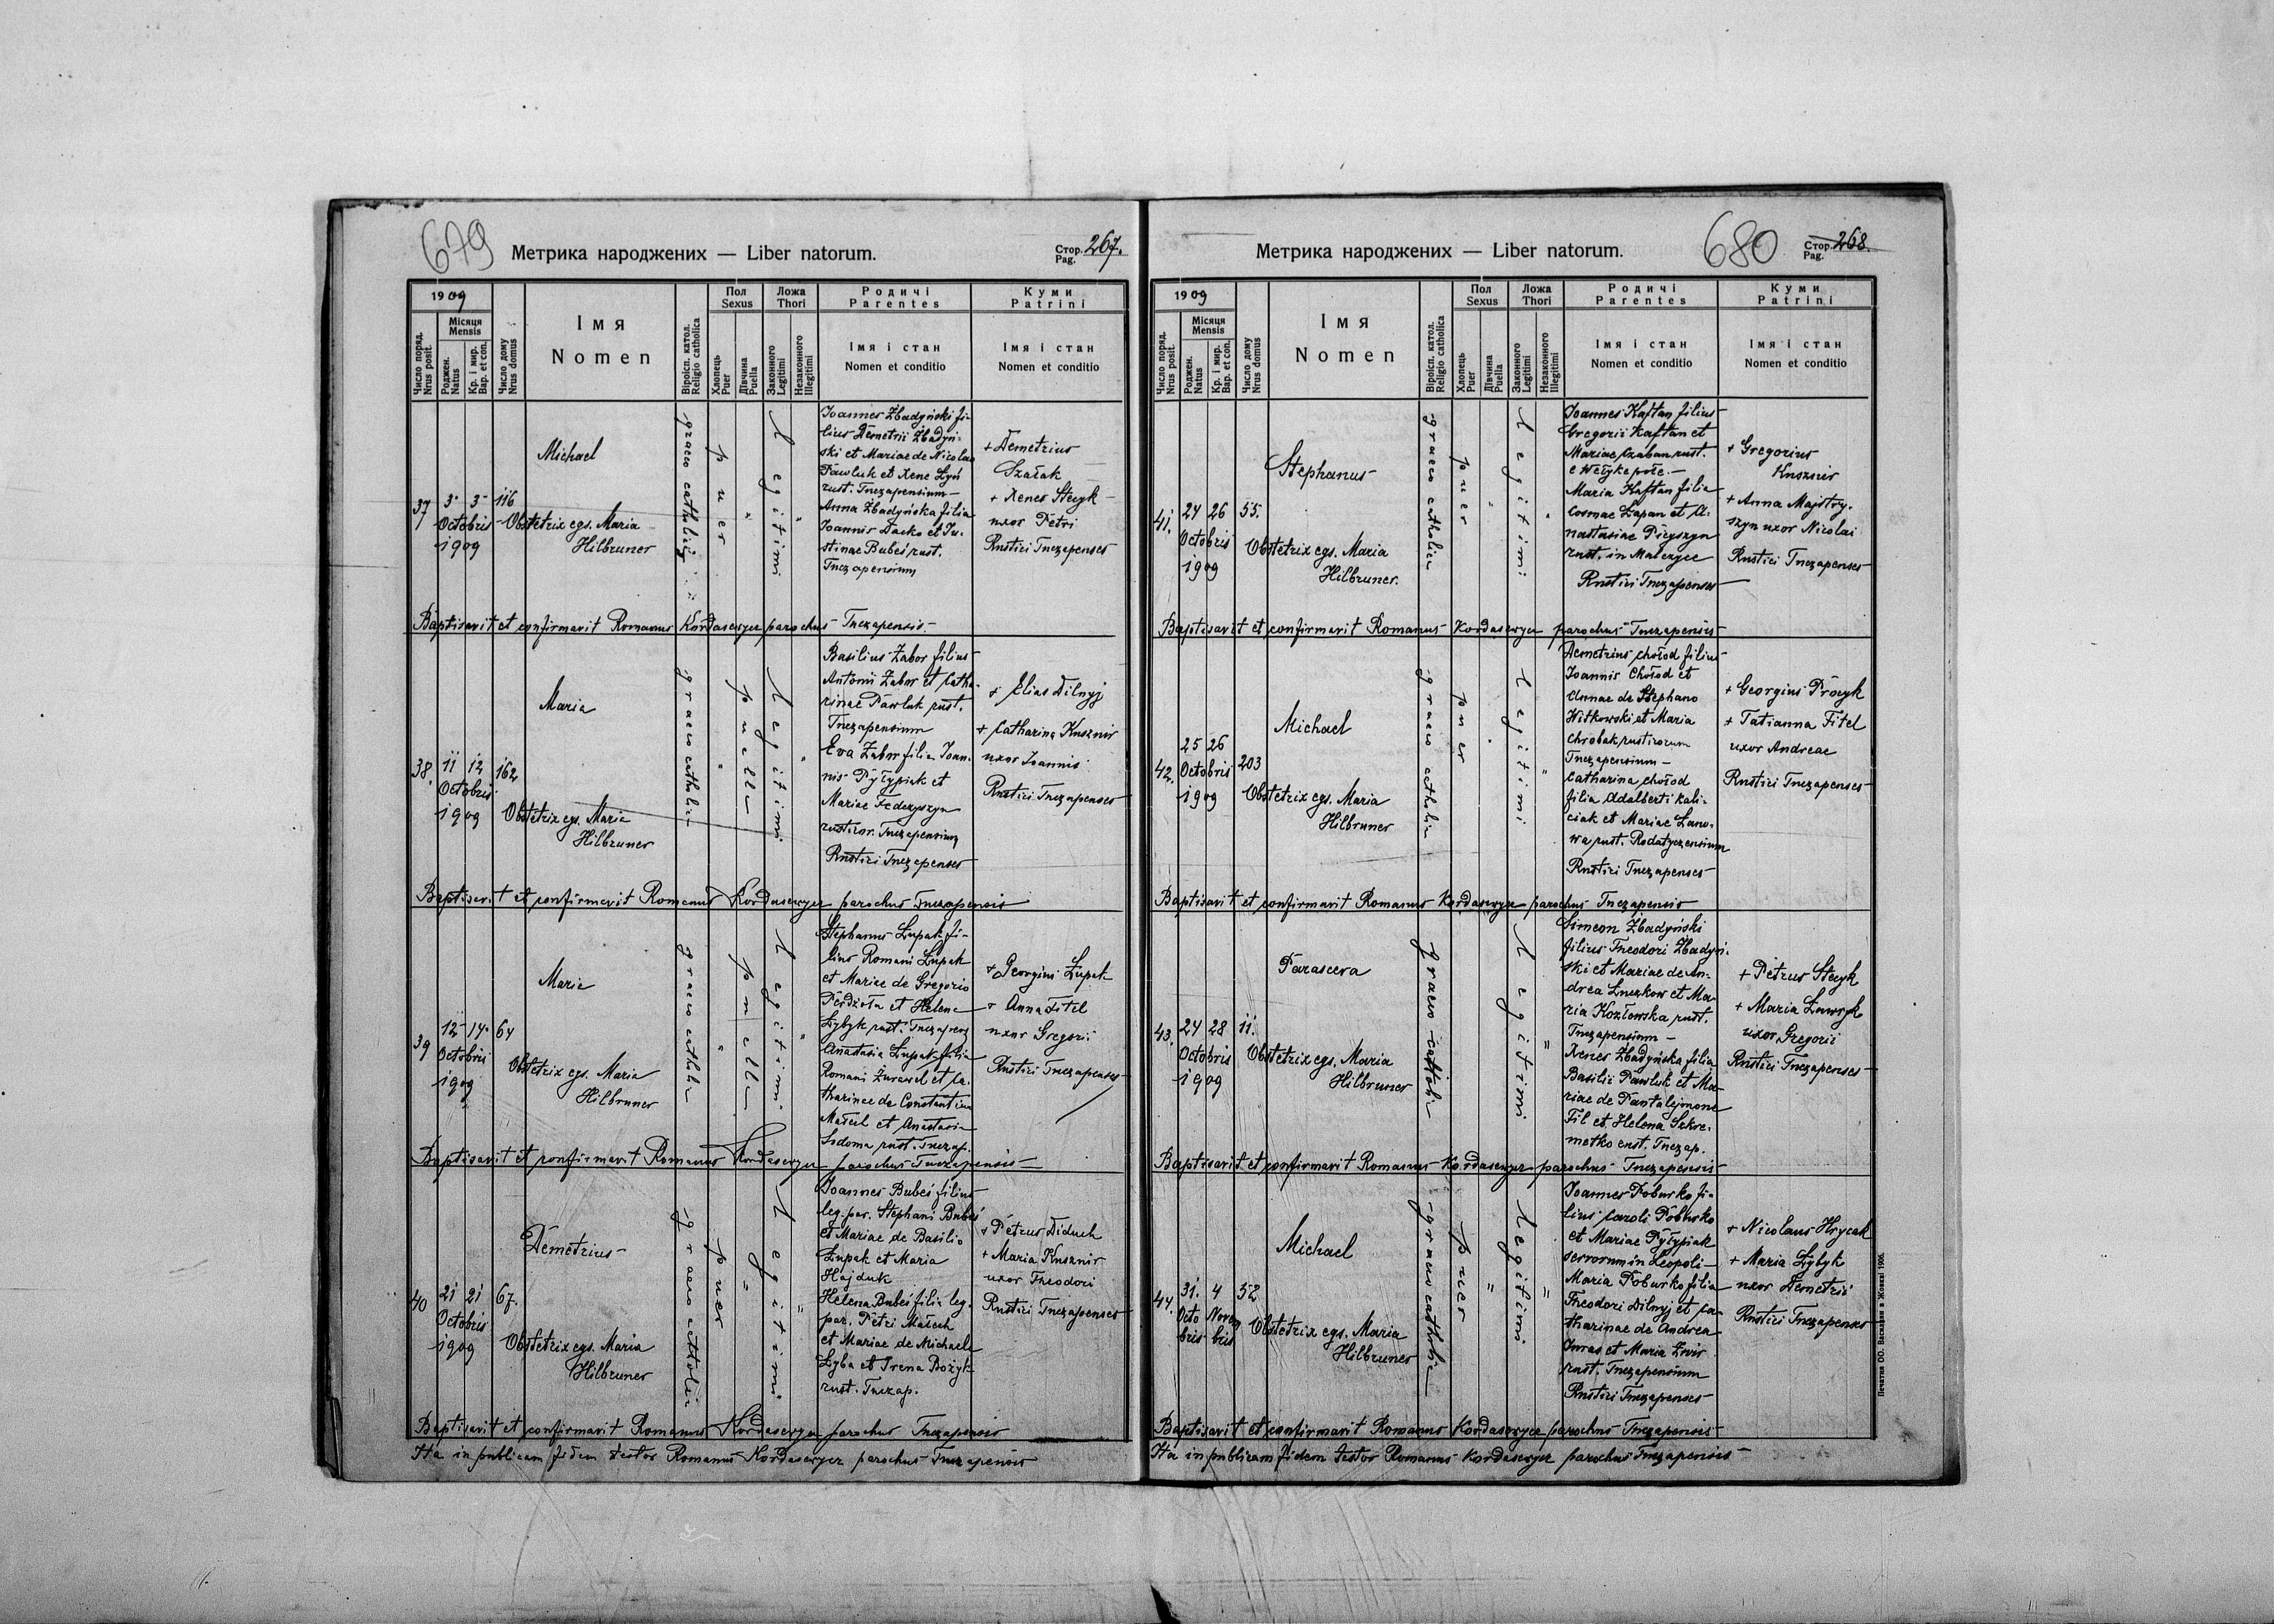 679
Метрика народжених — Liber natorum.
Стор. Pag. 267.
1909
Число поряд. Nrus posit.
Місяця Mensis
Роджен. Natus
Кр. і мир. Bap. et con.
Число дому Nrus domus
Імя
Nomen
Віроісп. катол. Religio catholica
Пол Sexus
Хлопець Puer
Дівчина Puella
Ложа Thori
Законного Legitimi
Незаконного Illegitimi
Родичі
Parentes
Імя і стан
Nomen et conditio
Куми
Patrini
Імя і стан
Nomen et conditio
37
3. 3.
Octobris
1909
116
Michael
Obstetrix egs. Maria
Hilbruner
graeco catholica
puer
"
Legitimi
"
Joannes Żbadyński fi-
lius Demetrii Żbadyń-
ski et Mariae de Nicolao
Pawluk et Xene Łyń
rust. Tuczapensium —
Anna Żbadyńska filia
Joannis Dacko et Ju-
stinae Bubeś rust.
Tuczapensium
+ Demetrius
Szałak
+ Xenes Stecyk
uxor Petri
Rustici Tuczapenses
Baptisavit et confirmavit Romanus Kordasewycz parochus Tuczapensis.
38.
11 12
Octobris
1909
162
Maria
Obstetrix egs. Maria
Hilbruner
graeco catholica
"
puella
Legitimi
"
Basilius Zabor filius
Antonii Zabor et Catha-
rinae Pawluk rust.
Tuczapensium
Eva Zabor filia Joan-
nis Pyłypiak et
Mariae Fedczyszyn
rusticor. Tuczapensium
Rustici Tuczapenses
+ Elias Dilnyj
+ Catharina Kusznir
uxor Joannis
Rustici Tuczapenses
Baptisavit et confirmavit Romanus Kordasewycz parochus Tuczapensis
39
12 14
Octobris
1909
64
Maria
Obstetrix egs. Maria
Hilbruner
graeco catholica
"
puella
Legitimi
"
Stephanus Łupak fi-
lius Romani Łupak
et Mariae de Gregorio
et Helena
Łybyk rust. Tuczapens
Anastasia Łupak filia
Romani Żurawel et Ca-
tharinae de Constantino
Małech et Anastasia
Sodoma rust. Tuczap.
+ Georgius Łupak
+ Anna Fitel
uxor Gregorii
Rustici Tuczapenses
Baptisavit et confirmavit Romanus Kordasewycz parochus Tuczapensis
40
21 21
Octobris
1909
67.
Demetrius
Obstetrix egs. Maria
Hilbruner
graeco catholica
puer
"
Legitimi
"
Joannes Bubeś filius
leg. par. Stephani Bubeś
et Mariae de Basilio
Łupak et Maria
Hajduk
Helena Bubeś filia leg.
par. Petri Małech
et Mariae de Michaele
Łyba et Irena Bożyk
rust. Tuczap.
+ Petrus Diduch
+ Maria Kusznir
uxor Theodori
Rustici Tuczapenses
Baptisavit et confirmavit Romanus Kordasewycz parochus Tuczapensis
Ita in publicam fidem testor Romanus Kordasewycz parochus Tuczapensis
680
Метрика народжених — Liber natorum.
Стор. Pag. 268.
1909
Число поряд. Nrus posit.
Місяця Mensis
Роджен. Natus
Кр. і мир. Bap. et con.
Число дому Nrus domus
Імя
Nomen
Віроісп. катол. Religio catholica
Пол Sexus
Хлопець Puer
Дівчина Puella
Ложа Thori
Законного Legitimi
Незаконного Illegitimi
Родичі
Parentes
Імя і стан
Nomen et conditio
Куми
Patrini
Імя і стан
Nomen et conditio
41.
24 26
Octobris
1909
55.
Stephanus
Obstetrix egs. Maria
Hilbruner.
graeco catholica
puer
"
Legitimi
"
Joannes Kaftan filius
Gregorii Kaftan et
Mariae Czaban rust.
e Wełyke połe. —
Maria Kaftan filia
Cosmae Łapan et A-
nastasiae Pryszyn
rust. in Malczyce
Rustici Tuczapenses
+ Gregorius
Kusznir
+ Anna Majstry-
szyn uxor Nicolai
Rustici Tuczapenses
Baptisavit et confirmavit Romanus Kordasewycz parochus Tuczapensis
42.
25 26
Octobris
1909
203
Michael
Obstetrix egs. Maria
Hilbruner
graeco catholica
puer
"
Legitimi
"
Demetrius Chołod filius
Joannis Chołod et
Annae de Stephano
Witkowski et Maria
Chrobak rusticorum
Tuczapensium —
Catharina Chołod
filia Adalberti Kali-
ciak et Mariae Łano-
wa rust. Rodatyczensium
Rustici Tuczapenses
+ Georgius Procyk
+ Tatianna Fitel
uxor Andreae
Rustici Tuczapenses
Baptisavit et confirmavit Romanus Kordasewycz parochus Tuczapensis
43.
24 28
Octobris
1909
11.
Parasceva
Obstetrix egs. Maria
Hilbruner
graeco-catholica
Legitimi
"
Simeon Żbadyński
filius Theodori Żbadyń-
ski et Mariae de An-
drea Łuczkow et Ma-
ria Kozłowska rust.
Tuczapensium —
Xenes Żbadyńska filia
Basilii Pawluk et Ma-
riae de Pantalejmone
Fil et Helena Szkre-
metko rust. Tuczap.
+ Petrus Stecyk
+ Maria Ławryk
uxor Gregorii
Rustici Tuczapenses
Baptisavit et confirmavit Romanus Kordasewycz parochus Tuczapensis
44.
31. 4
Octo Novem
bris bris
52
Michael
Obstetrix egs. Maria
Hilbruner
graeco catholica
puer
"
Legitimi
"
Joannes Poburko fi-
lius Caroli Poburko
et Mariae Pyłypiak
servorum in Leopoli —
Maria Poburko filia
Theodori Dilnyj et Ca-
tharinae de Andrea
Juras et Maria Żwir
rust. Tuczapensium
Rustici Tuczapenses
+ Nicolaus Hrycak
+ Maria Łybyk
uxor Demetrii
Rustici Tuczapenses
Baptisavit et confirmavit Romanus Kordasewycz parochus Tuczapensis
Ita in publicam fidem testor Romanus Kordasewycz parochus Tuczapensis
Печатня ОО. Василиян в Жовкві 1906.